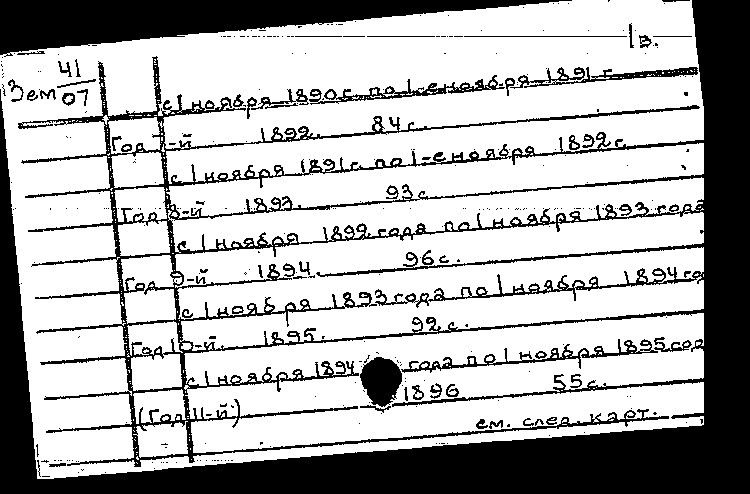 1в.
Зем 41/07
с 1 ноября 1890 г. по 1-е ноября 1891 г.
Год 7-й 1892. 84 с.
с 1 ноября 1891 г. по 1-е ноября 1892 г.
Год 8-й 1893. 93 с.
с 1 ноября 1892 года по 1 ноября 1893 года
Год 9-й. 1894. 96 с.
с 1 ноября 1893 года по 1 ноября 1894 го
Год 10-й. 1895. 92 с.
с 1 ноября 1894 года по 1 ноября 1895 год
(Год 11-й.) 1896 55 с.
см. след. карт.